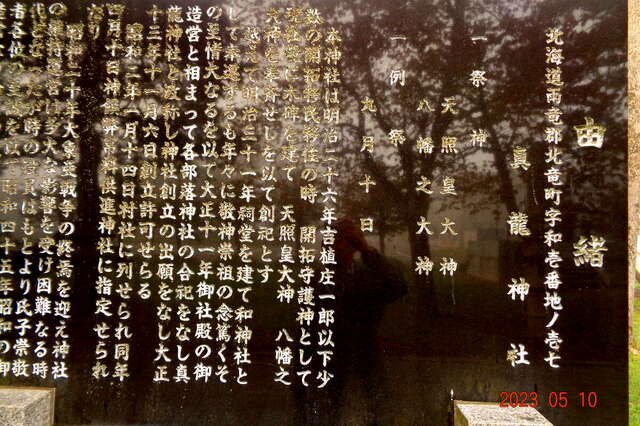 由緒
北海道雨竜郡北竜町字和壱番地ノ壱七
真龍神社
一祭神
天照皇大神
八幡之大神
一例祭
九月十日
本神社は明治二十六年吉植庄一郎以下少
数の開拓移民移住の時 開拓守護神として
現社地に木碑を建て 天照皇大神 八幡之
大神を奉斎せしを以て創祀とす
越えて明治三十一年祠堂を建て和神社と
して奉遷するも年々に敬神崇祖の念篤くそ
の至情大なるを以て大正十一年御社殿の御
造営と相まって各部落神社の合祀をなし真
龍神社と改称し神社創立の出願をなし大正
十三年十一月六日創立許可せらる
昭和二年二月十四日村社に列せられ同年
四月十日神饌幣帛料供進神社に指定せられ
たり
昭和二十年大東亜戦争の終焉を迎え神社
の維持運営は多大な影響を受け困難なる時
代となったが時の役員はもとより氏子崇敬
者各位の
を以て昭和四十五年昭和の御
2023 05 10